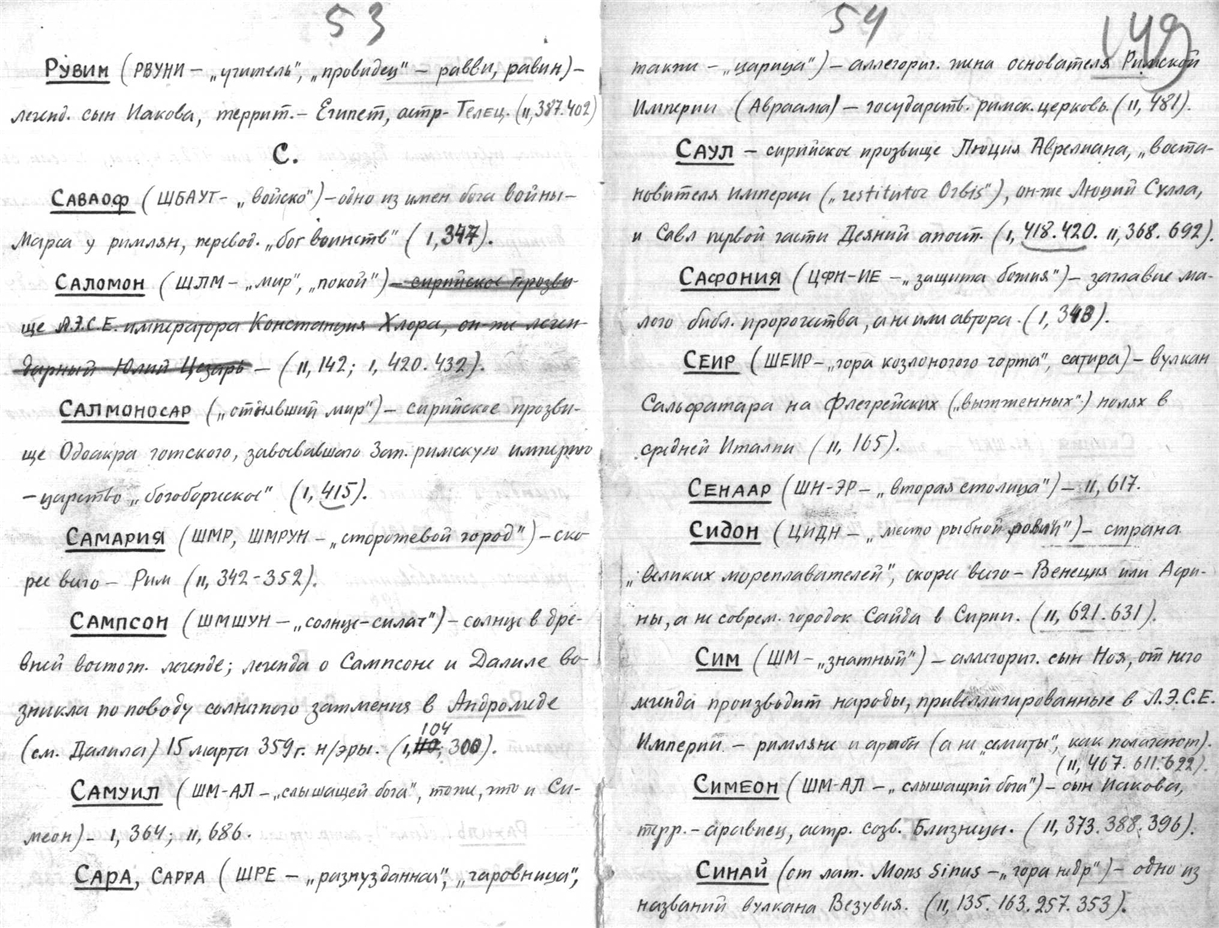 53
Рувим (РВУНИ – „учитель", „провидец" – равви, равин) –
легенд. сын Иакова, террит. – Египет, астр- Телец. (II, 387.402)
С.
Саваоф (ШБАУТ – „войско") – одно из имен бога войны –
Марса у римлян, перевод. „бог воинств" (I, 347).
Саломон (ШЛМ – „мир", „покой") – сирийское прозви-
ще Л.Э.С.Е. императора Констанция Хлора, он-же леген-
дарный Юлий Цезарь – (II, 142; I, 420.432).
Салмоносар („отнявший мир") – сирийское прозви-
ще Одоакра готского, завоевавшаго Зап. римскую империю
– царство „богоборческое" (I, 415).
Самария (ШМР, ШМРУН – „сторожевой город") – ско-
рее всего – Рим (II, 342-352).
Сампсон (ШМШУН – „солнце-силач") – солнце в дре-
вней восточ. легенде; легенда о Сампсоне и Далиле во-
зникла по поводу солнечного затмения в Андромеде
(см. Далила) 15 марта 359 г. н/эры. (I, 104, 300).
Самуил (ШМ-АЛ – „слышащей бога", тоже, что и Си-
меон) – I, 364; II, 686.
Сара, Сарра (ШРЕ – „разнузданная", „чаровница",
54
149
также – „царица") – аллегориг. жена основателя Римской
Империи (Авраама) – государств. римск. церковь (II, 481).
Саул – сирийское прозвище Люция Аврелиана, „воста-
новителя империи („restitutor Orbis"), он-же Люций Сулла,
и Савл первой части Деяний апост. (I, 418.420. II, 368. 692).
Сафония (ЦФН-ИЕ – „защита божия") – заглавие ма-
лого библ. пророчества, а не имя автора. (I, 348).
Сеир (ШЕИР – „гора козлоногого чорта", сатира) – вулкан
Сальфатара на Флегрейских („выжженных") полях в
средней Италии (II, 165).
Сенаар (ШН-ЭР – „вторая столица") – II, 617.
Сидон (ЦИДН – „место рыбной ловли") – страна
„великих мореплавателей", скорее всего – Венеция или Афи-
ны, а не соврем. городок Сайда в Сирии. (II, 621.631).
Сим (ШМ – „знатный") – аллегориг. сын Ноя, от него
легенда производит народы, привеллигированные в Л.Э.С.Е.
Империи – римляне и арабы (а не „семиты", как полагают).
(II, 467. 611.622).
Симеон (ШМ-АЛ – „слышащий бога") – сын Иакова,
терр. – аравиец, астр. созв. Близнецы. (II, 373. 388. 396).
Синай (от лат. Mons Sinus – „гора недр") – одно из
названий вулкана Везувия. (II, 135. 163. 257. 353).